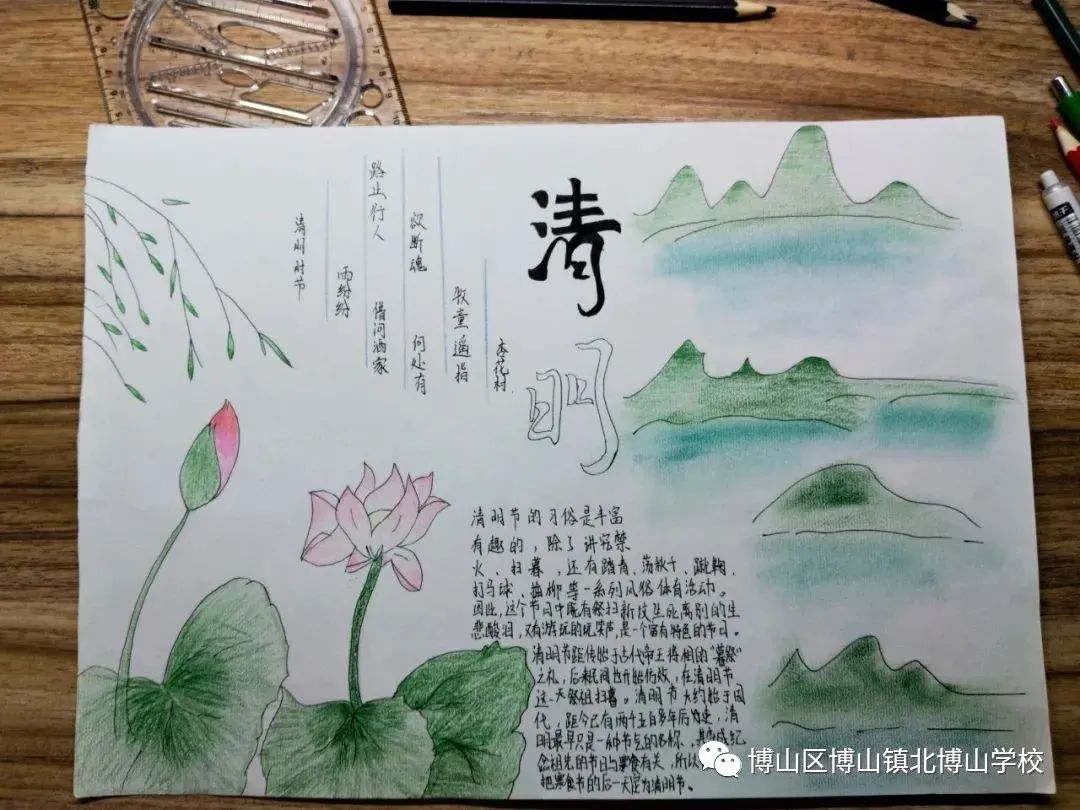 清明
清明时节
雨纷纷
路止行人
欲断魂
借问酒家
何处有
牧童遥指
杏花村.
清明节的习俗是丰富
有趣的，除了讲究禁
火、扫墓，还有踏青、荡秋千、蹴鞠、
打马球、插柳等一系列风俗体育活动。
因此，这个节日中既有祭扫新坟生死离别的生
悲酸泪，又有游玩的玩笑声，是一个富有特色的节日。
清明节距传始于古代帝王将相的“墓祭”
之礼，后来民间也开始仿效，在清明节
这一天祭祖扫墓。清明节大约始于周
代，距今已有两千五百多年历史，清
明最早只是一种节气的名称，其变成纪
念祖先的节日与寒食有关，所以
把寒食节的后一天定为清明节。
博山区博山镇北博山学校